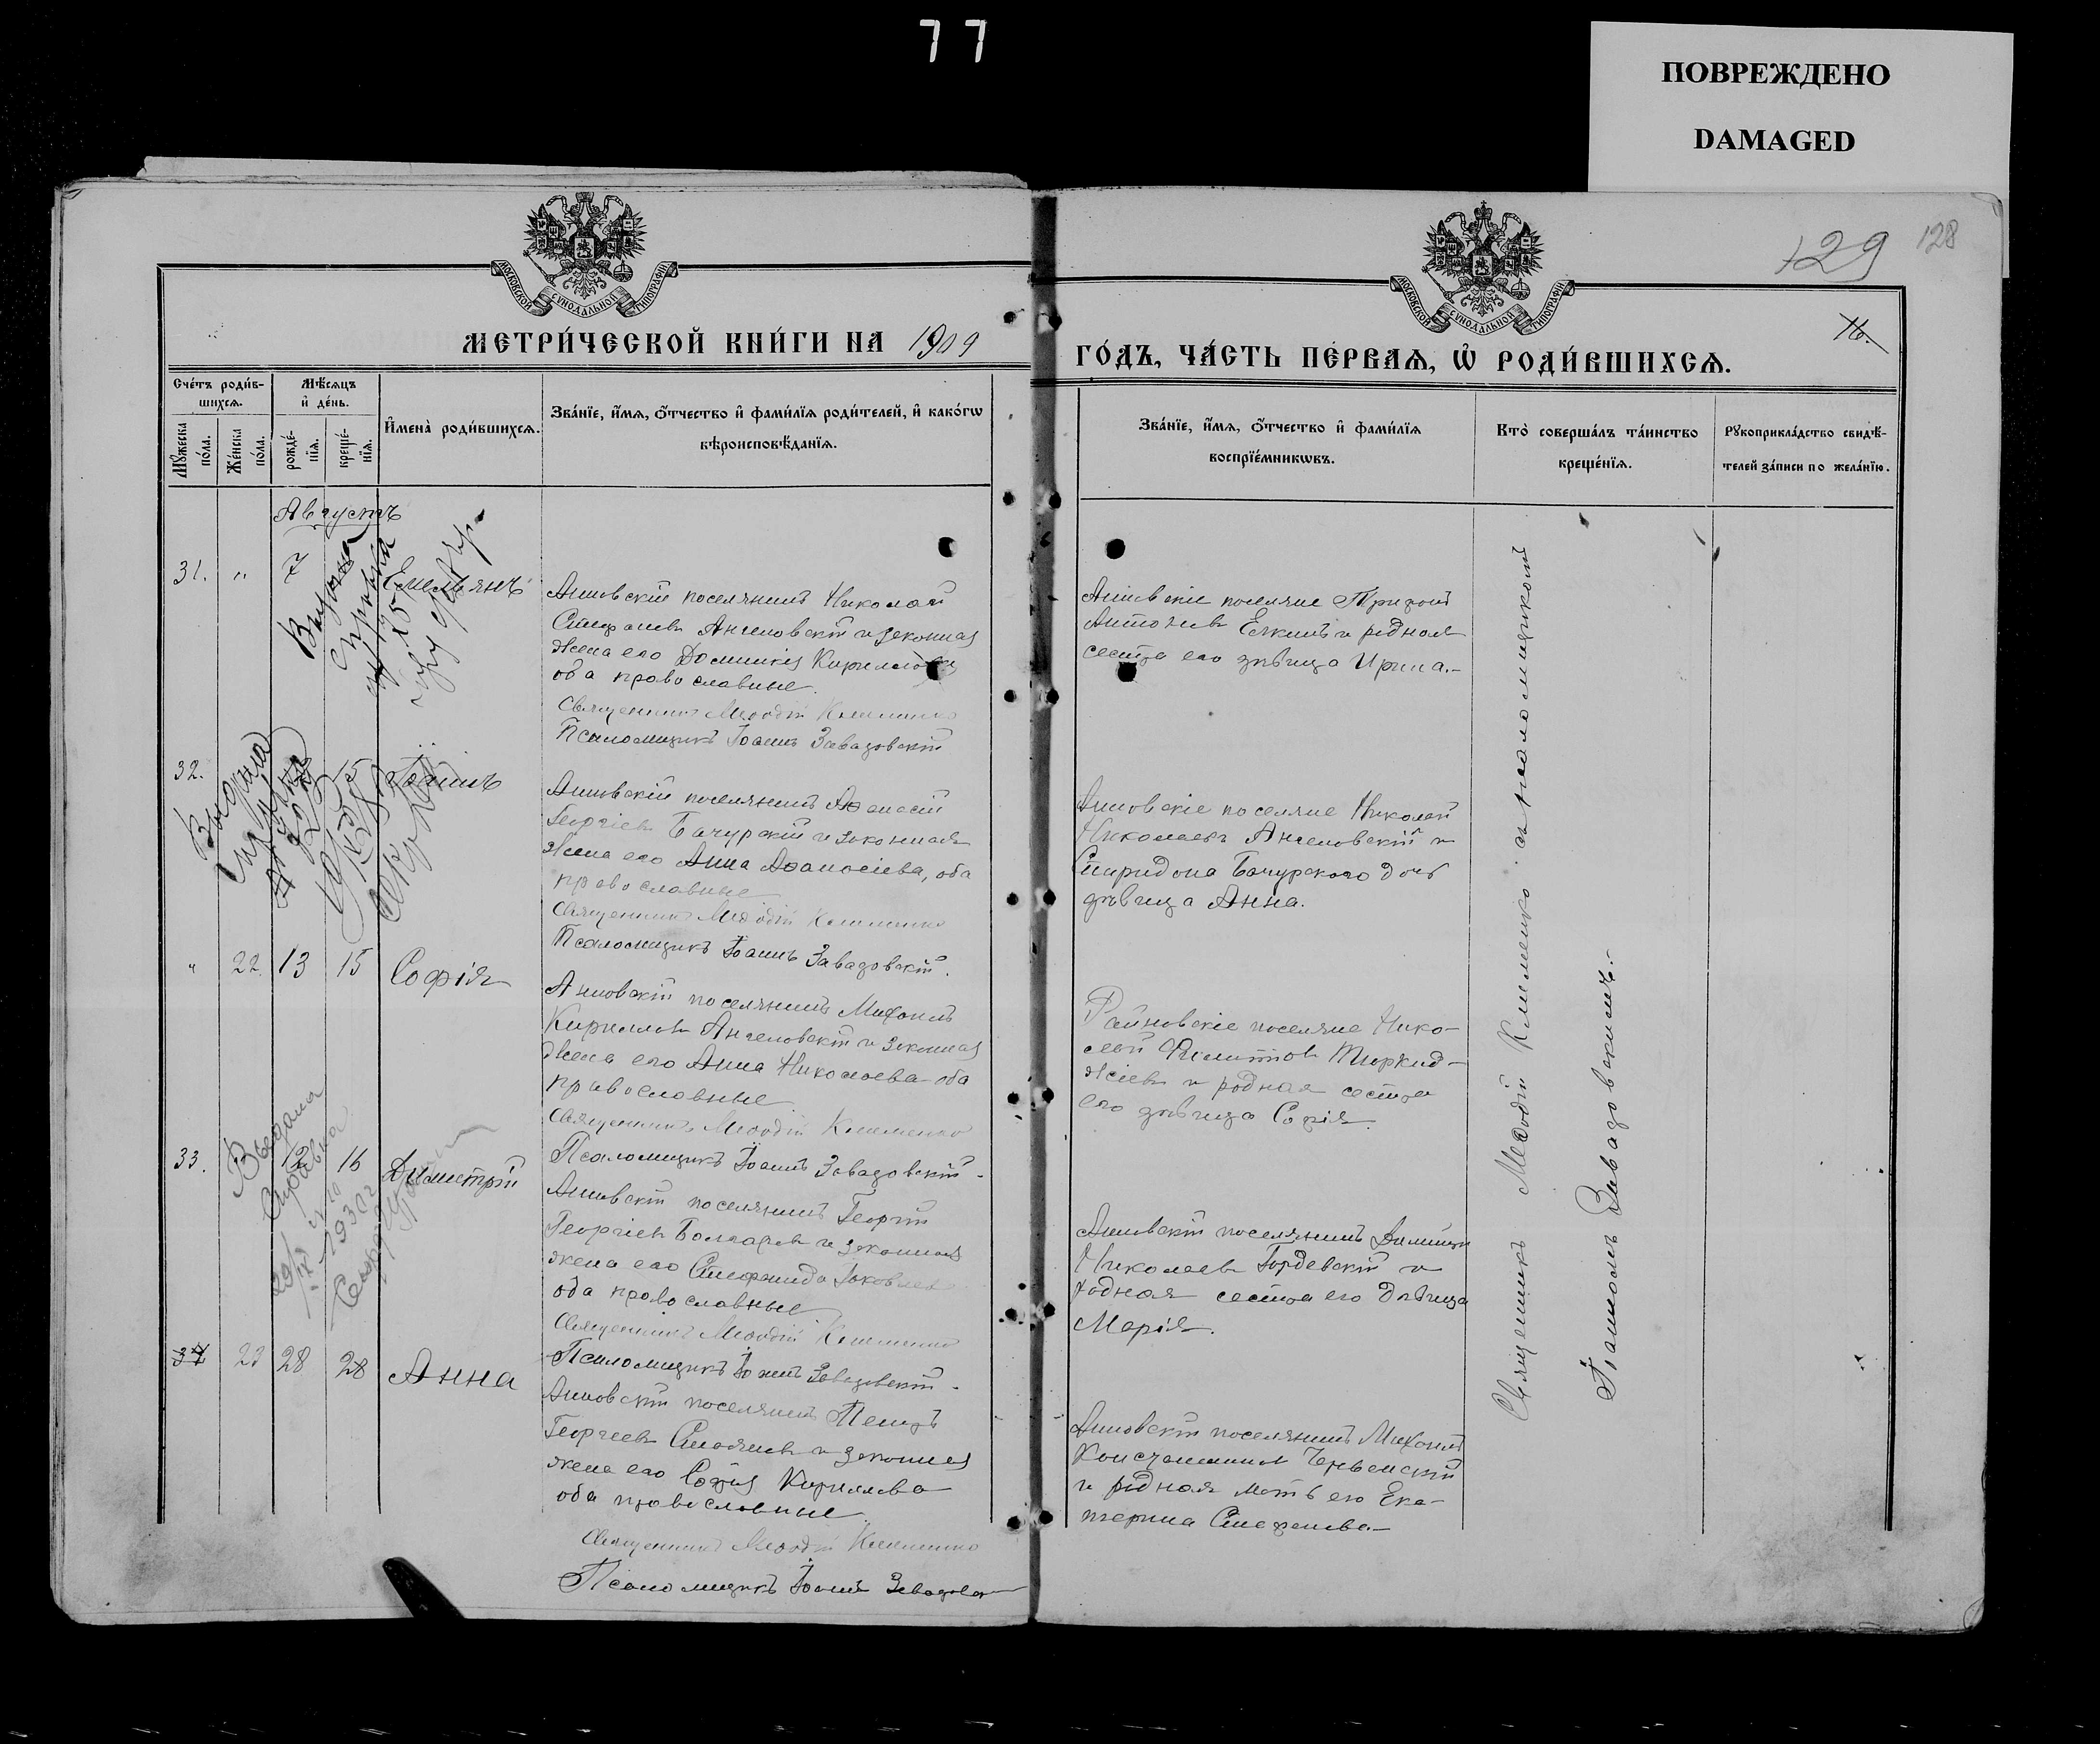 77
ПОВРЕЖДЕНО
DAMAGED
129 128
МОСКОВСКОЙ СУНОДАЛЬНОЙ ТИПОГРАФІИ
МОСКОВСКОЙ СУНОДАЛЬНОЙ ТИПОГРАФІИ
76.
МЕТРИ́ЧЕСКОЙ КНИ́ГИ НА 1909
ГО́ДЪ, ЧА́СТЬ ПЕ́РВАѦ, Ѡ҆ РОДИ́ВШИХСѦ.
Сче́тъ роди́в-
шихсѧ.
Мꙋ́жеска по́ла.
Же́нска по́ла.
Мѣ́сѧцъ
и҆ де́нь.
рожде́-
нїѧ.
креще́-
нїѧ.
И҆мена̀ роди́вшихсѧ.
Зва́нїе, и҆́мѧ, ѻ҆́тчество и҆ фами́лїѧ роди́телей, и҆ како́гѡ
вѣроисповѣ́данїѧ.
Зва́нїе, и҆́мѧ, ѻ҆́тчество и҆ фами́лїѧ
воспрїе́мникѡвъ.
Кто̀ соверша́лъ та́инство
креще́нїѧ.
Рꙋкоприкла́дство свидѣ́-
телей за́писи по жела́нїю.
Августъ
31. " 7 Емельянъ
Выдана
справка
Анновскій поселянинъ Николай
Стефановъ Ангеловскій и законная
жена его Домникія Кириллова
оба православные.
Священникъ Меѳодій Клименко
Псаломщикъ Іоаннъ Завадовскій
Анновскіе поселяне Трифонъ
Антоновъ Елкинъ и родная
сестра его дѣвица Ирина.-
32. 15 Іоаннъ
Выдана
справка
Анновскій поселянинъ Аѳанасій
Георгіевъ Бачурскій и законная
жена его Анна Аѳанасіева, оба
православные
Священникъ Меѳодій Клименко
Псаломщикъ Іоаннъ Завадовскій.
Анновскіе поселяне Николай
Николаевъ Ангеловскій и
Спиридона Бачурскаго дочь
дѣвица Анна.
" 22. 13 15 Софія
Анновскій поселянинъ Михаилъ
Кирилловъ Ангеловскій и законная
жена его Анна Николаева оба
православные
Священникъ Меѳодій Клименко
Псаломщикъ Іоаннъ Завадовскій-
поселяне Нико-
лай
и родная сестра
его дѣвица Софія.
33. 12 16 Димитрій
Выдана
справка
Анновскій поселянинъ Георгій
Георгіевъ Болгаровъ и законная
жена его Стефанида Яковлева
оба православные
Священникъ Меѳодій Клименко
Псаломщикъ Іоаннъ Завадовскій-
Анновскій поселянинъ Димитрій
Николаевъ Гордевскій и
родная сестра его дѣвица
Марія.
34 23 28 28 Анна
Анновскій поселянинъ
Георгіевъ Стояновъ и законная
жена его Софія Кириллова
оба православные.
Священникъ Меѳодій Клименко
Псаломщикъ Іоаннъ Завадовскій
Анновскій поселянинъ Михаилъ
Константиновъ
и родная мать его Ека-
терина Стефанова-
Священникъ Меѳодій Клименко съ псаломщикомъ
Іоанномъ Завадовскимъ.-